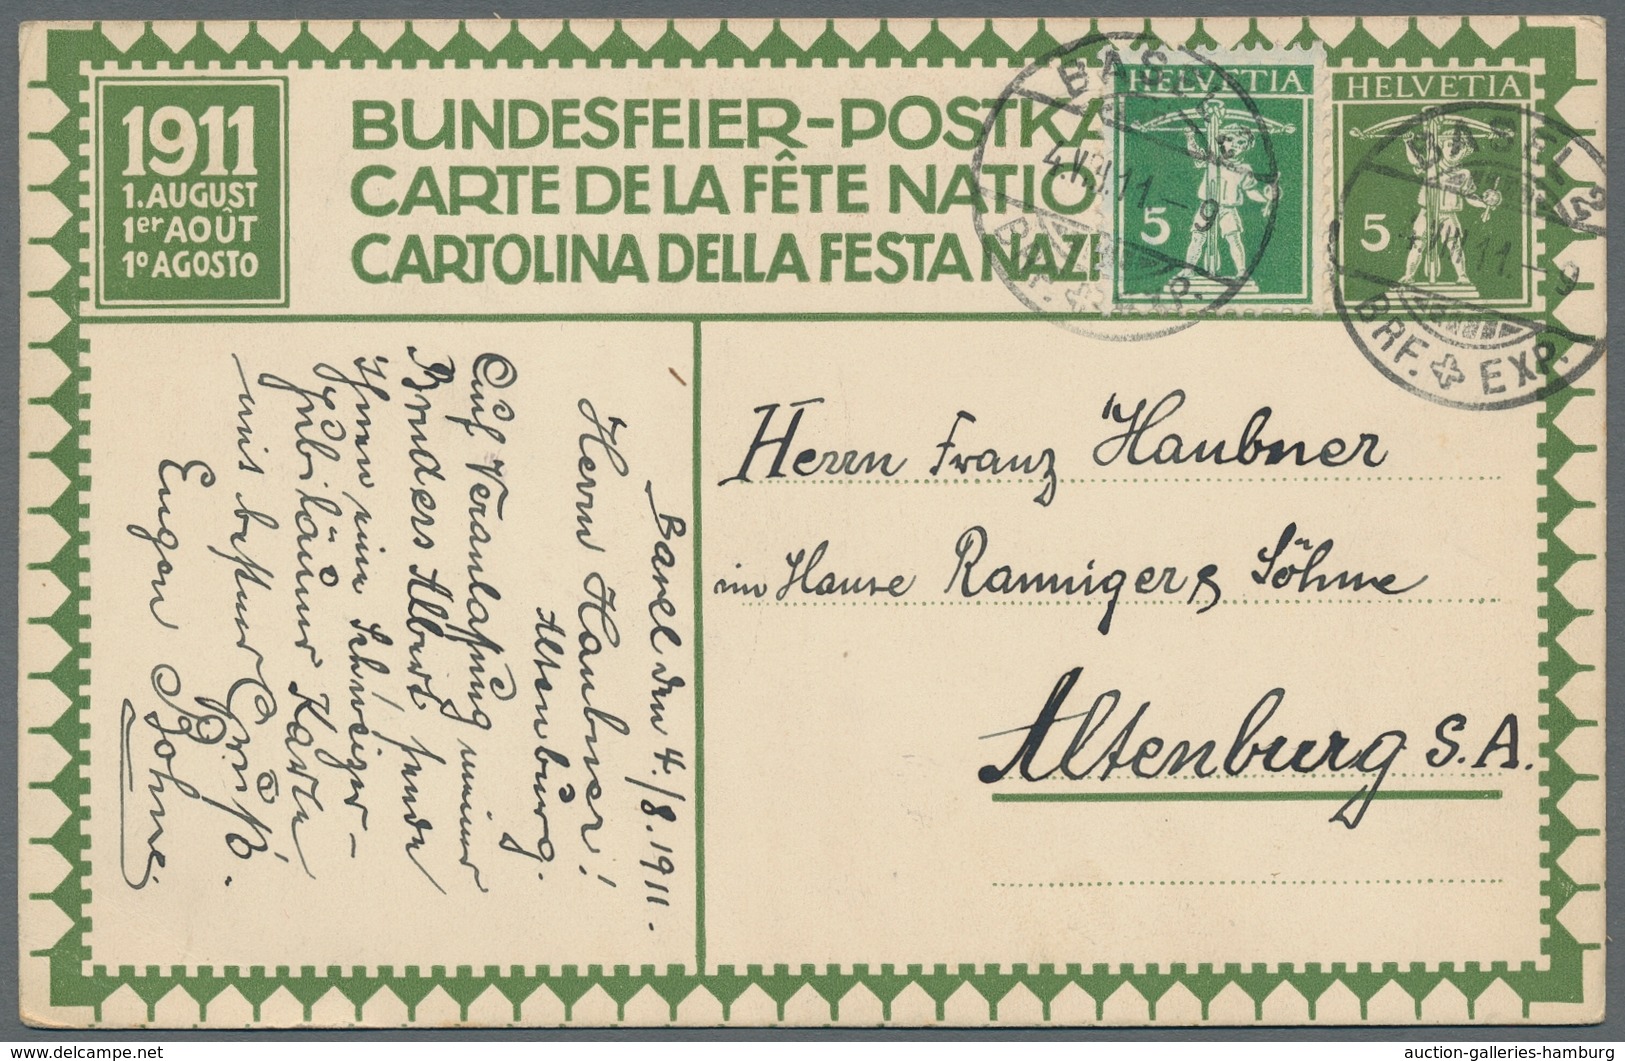 1911
1. AUGUST
1er AOÛT
1º AGOSTO
BUNDESFEIER-POSTKA
CARTE DE LA FÊTE NATIO
CARTOLINA DELLA FESTA NAZ
HELVETIA
5
HELVETIA
5
BASEL 2
4.VIII.11.-9
BRF. EXP.
BASEL 2
4.VIII.11.-9
BRF. EXP.
Basel den 4./8.1911.
Herrn Haubner!
Altenburg.
Auf Veranlassung meines
Bruders Albert sende
Ihnen eine Schweizer-
Jubiläums Karte
mit bestem Gruß.
Eugen Bohne
Herrn Franz Haubner
im Hause Ranniger & Söhne
Altenburg S.A.
auction-galleries-hamburg